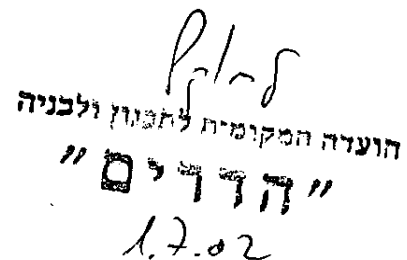 הועדה המקומית לתכנון ולבניה
"הדרים"
1.7.02